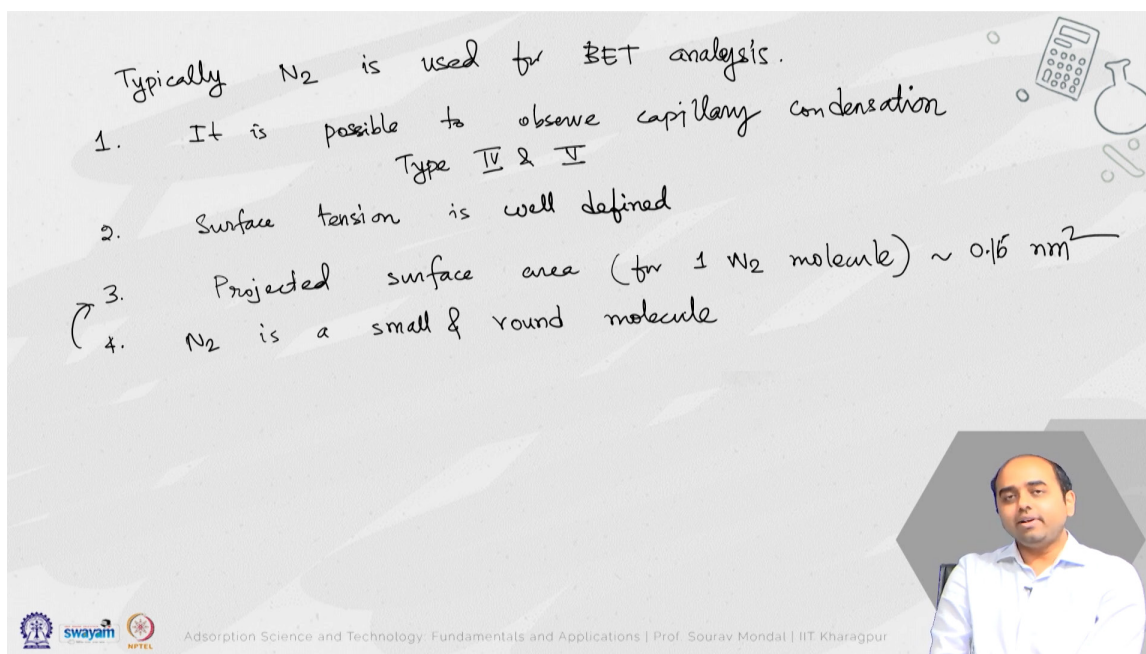 Typically N2 is used for BET analysis.
1. It is possible to observe capillary condensation
Type IV & V
2. Surface tension is well defined
3. Projected surface area (for 1 N2 molecule) ~ 0.16 nm2
4. N2 is a small & round molecule
swayam
NPTEL
Adsorption Science and Technology: Fundamentals and Applications | Prof. Sourav Mondal | IIT Kharagpur